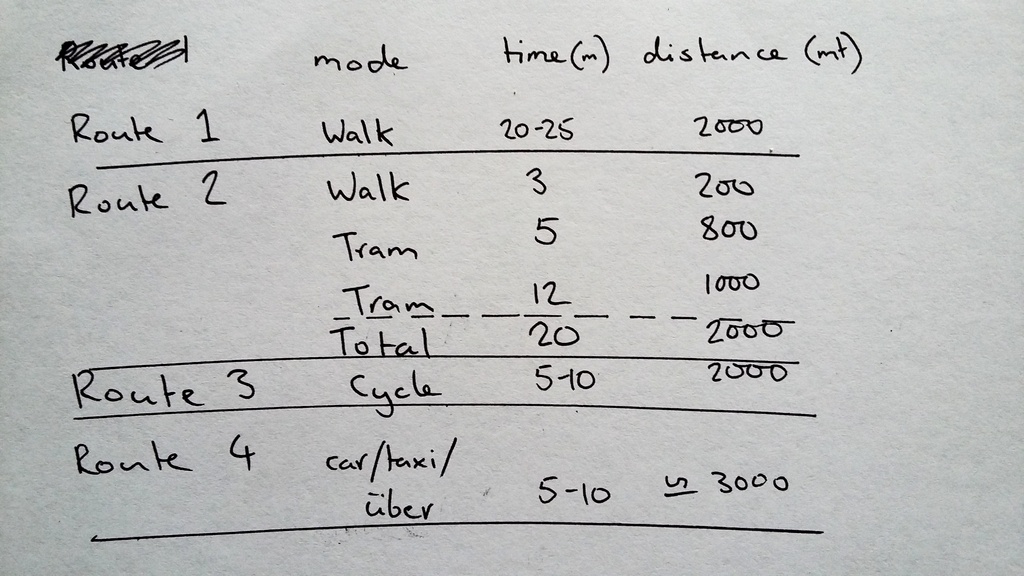 mode time(m) distance (mt)
Route 1 Walk 20-25 2000
Route 2 Walk 3 200
Tram 5 800
Tram 12 1000
Total 20 2000
Route 3 Cycle 5-10 2000
Route 4 car/taxi/
über 5-10 ≃ 3000